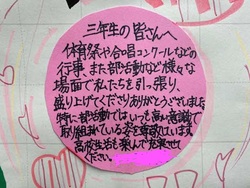 三年生の皆さんへ
体育祭や合唱コンクールなどの
行事、また部活動など様々な
場面で私たちを引っ張り、
盛り上げてくださりありがとうございました。
特に部活動では いつも高い意識で
取り組まれている姿を尊敬しています。
高校生活も楽しんで充実させて
ください。